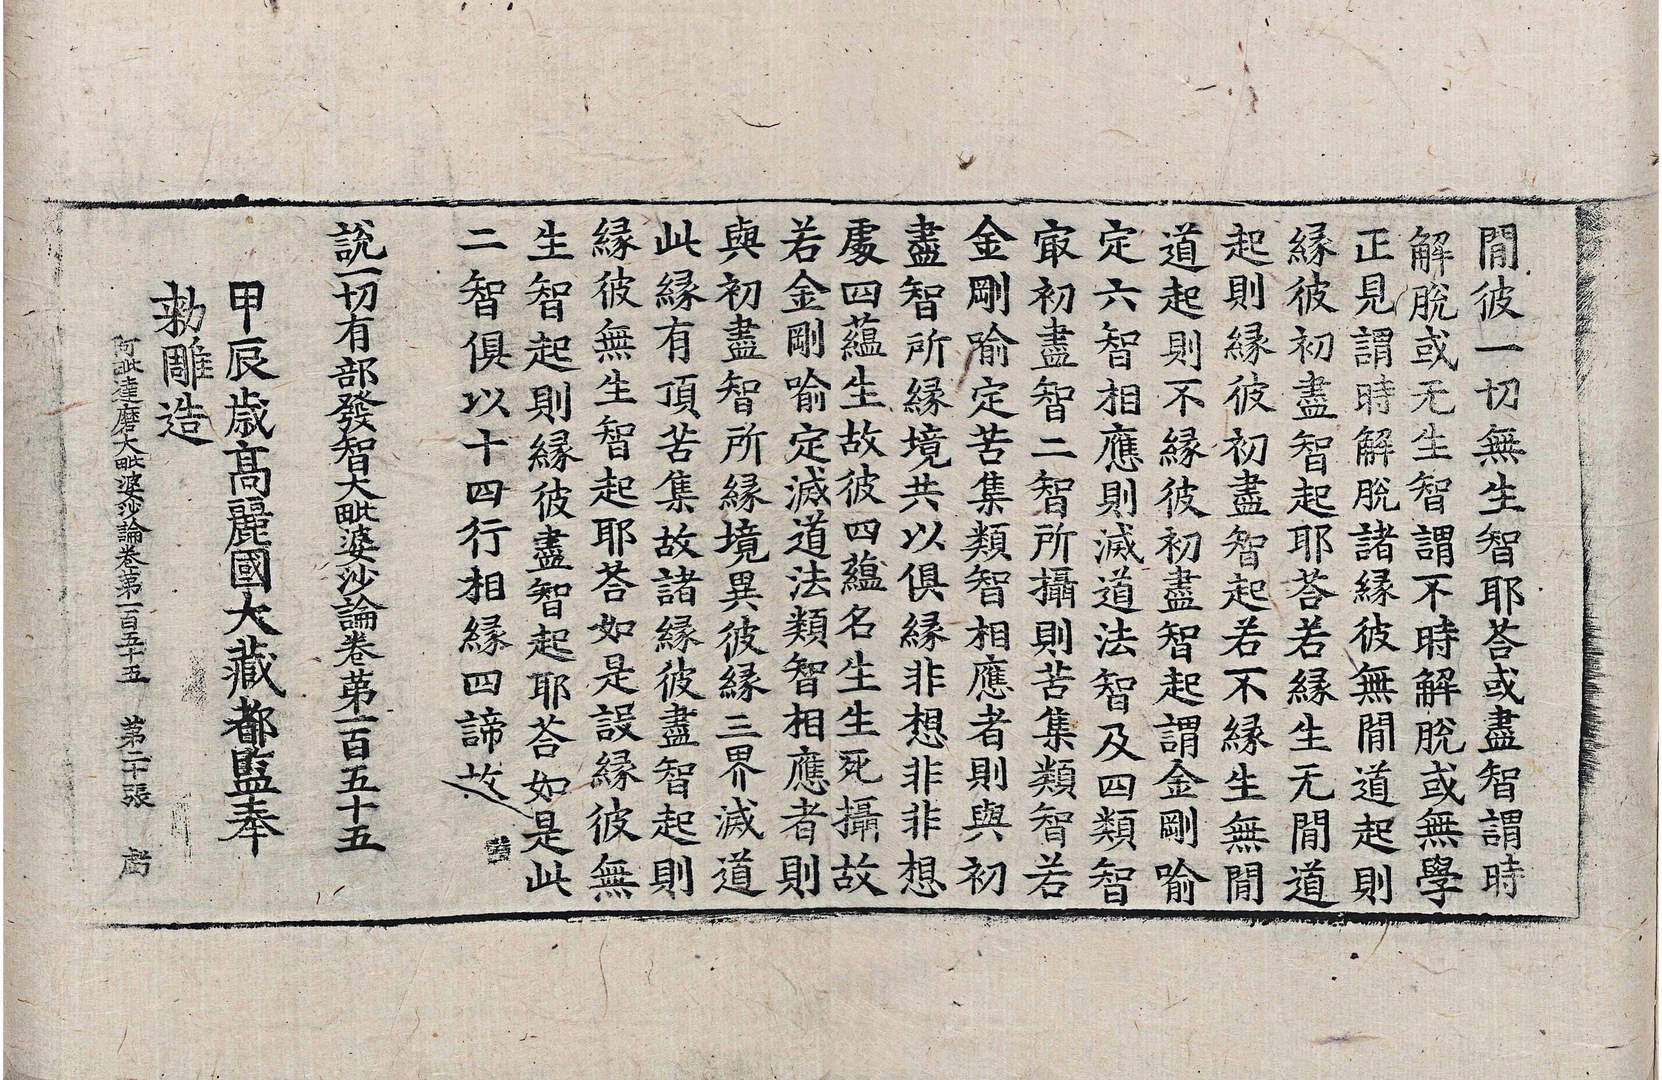 閒彼一切無生智耶荅或盡智謂時
解脫或无生智謂不時解脫或無學
正見謂時解脫諸緣彼無閒道起則
緣彼初盡智起耶荅若緣生无閒道
起則緣彼初盡智起若不緣生無閒
道起則不緣彼初盡智起謂金剛喻
定六智相應則滅道法智及四類智
㝡初盡智二智所攝則苦集類智若
金剛喻定苦集類智相應者則與初
盡智所緣境共以俱緣非想非非想
處四蘊生故彼四蘊名生生死攝故
若金剛喻定滅道法類智相應者則
與初盡智所緣境異彼緣三界滅道
此緣有頂苦集故諸緣彼盡智起則
緣彼無生智起耶荅如是設緣彼無
生智起則緣彼盡智起耶荅如是此
二智俱以十四行相緣四諦故
說一切有部發智大毗婆沙論卷第一百五十五
甲辰歲高麗國大藏都監奉
勅雕造
阿毗達磨大毗婆沙論卷第一百五十五 第二十張